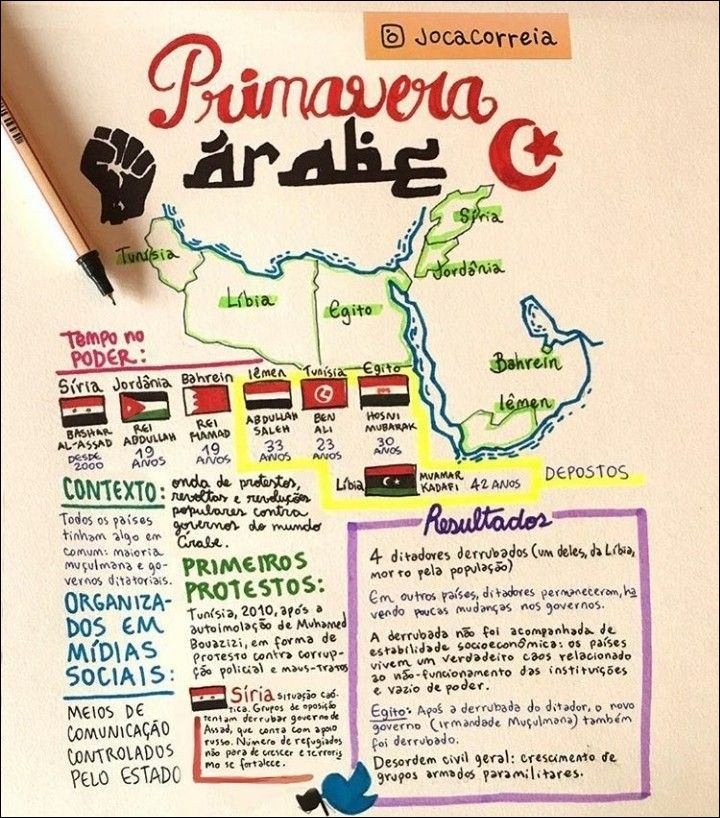 Jocacorreia
Primavera
árabe
Síria
Tunísia
Jordânia
Líbia
Egito
Bahrein
Iêmen
Tempo no
PODER:
Síria
BASHAR
AL-ASSAD
DESDE
2000
Jordânia
REI
ABDULLAH
19
ANOS
Bahrein
REI
HAMAD
19
ANOS
Iêmen
ABDULLAH
SALEH
33
ANOS
Tunísia
BEN
ALI
23
ANOS
Egito
HOSNI
MUBARAK
30
ANOS
Líbia
MUAMAR
KADAFI
42 ANOS
DEPOSTOS
CONTEXTO:
onda de protestos,
revoltas e revoluções
populares contra
governos do mundo
árabe.
Todos os países
tinham algo em
comum: maioria
muçulmana e go-
vernos ditatoriais.
ORGANIZA-
DOS EM
MÍDIAS
SOCIAIS:
MEIOS DE
COMUNICAÇÃO
CONTROLADOS
PELO ESTADO
PRIMEIROS
PROTESTOS:
Tunísia, 2010, após a
autoimolação de Muhamed
Bouazizi, em forma de
protesto contra corrup-
ção policial e maus-tratos
Síria situação caó-
tica. Grupos de oposição
tentam derrubar governo de
Assad, que conta com apoio
russo. Número de refugiados
não para de crescer e terroris
mo se fortalece.
Resultados
4 ditadores derrubados (um deles, da Líbia,
morto pela população)
Em outros países, ditadores permaneceram, ha
vendo poucas mudanças nos governos.
A derrubada não foi acompanhada de
estabilidade socioeconômica: os países
vivem um verdadeiro caos relacionado
ao não-funcionamento das instituições
e vazio de poder.
Egito: Após a derrubada do ditador, o novo
governo (Irmandade Muçulmana) também
foi derrubado.
Desordem civil geral: crescimento de
grupos armados paramilitares.